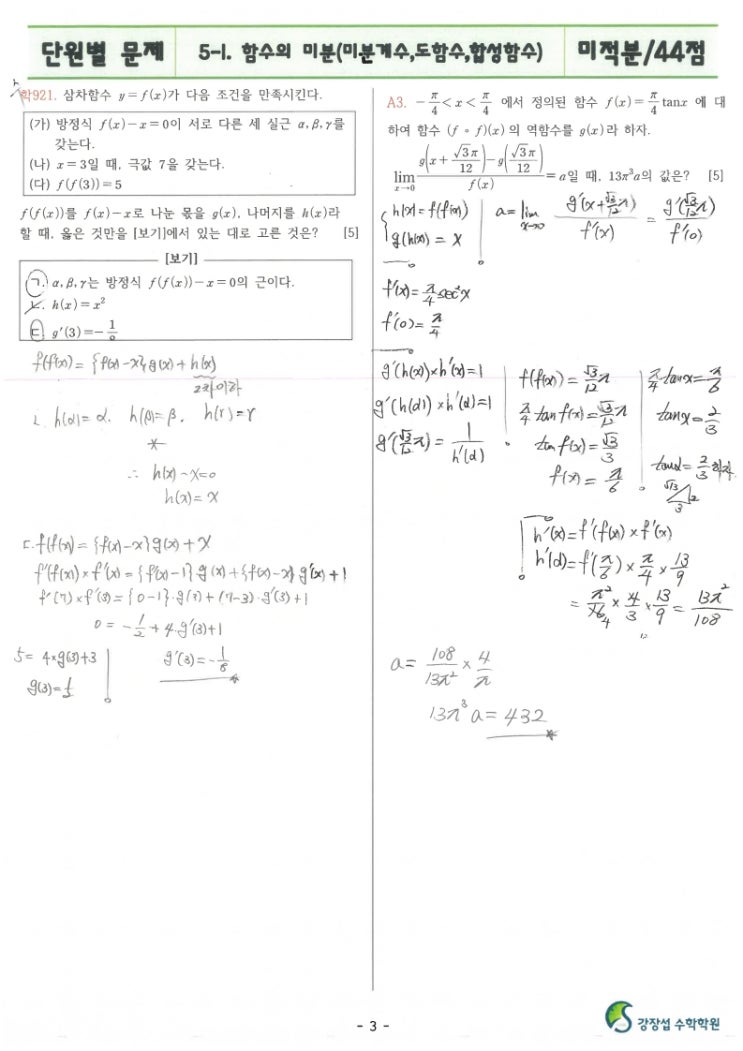 단원별 문제
5-1. 함수의 미분(미분계수,도함수,합성함수)
미적분/44점
학921. 삼차함수 y=f(x)가 다음 조건을 만족시킨다.
(가) 방정식 f(x)-x=0이 서로 다른 세 실근 α,β,γ를
갖는다.
(나) x=3일 때, 극값 7을 갖는다.
(다) f(f(3))=5
f(f(x))를 f(x)-x로 나눈 몫을 g(x), 나머지를 h(x)라
할 때, 옳은 것만을 [보기]에서 있는 대로 고른 것은? [5]
[보기]
ㄱ. α,β,γ는 방정식 f(f(x))-x=0의 근이다.
ㄴ. h(x)=x²
ㄷ. g′(3)=-1/8
f(f(x))={f(x)-x}g(x)+h(x)
2차이하
ㄴ. h(α)=α. h(β)=β. h(γ)=γ
∴ h(x)-x=0
h(x)=x
ㄷ. f(f(x))={f(x)-x}g(x)+x
f′(f(x))×f′(x)={f′(x)-1}g(x)+{f(x)-x}g′(x)+1
f′(7)×f′(3)={0-1}·g(3)+(7-3)·g′(3)+1
0=-1/2+4·g′(3)+1
5=4×g(3)+3
g′(3)=-1/8
g(3)=1/2
A3. -π/4<x<π/4 에서 정의된 함수 f(x)=π/4 tanx 에 대
하여 함수 (f∘f)(x)의 역함수를 g(x)라 하자.
lim x→0 {g(x+√3π/12)-g(√3π/12)}/f(x)=a일 때, 13π³a의 값은? [5]
h(x)=f(f(x))
g(h(x))=x
a=lim x→0 g′(x+√3/12π)/f′(x)=g′(√3/12π)/f′(0)
f′(x)=π/4 sec²x
f′(0)=π/4
g′(h(x))×h′(x)=1
g′(h(α))×h′(α)=1
g′(√3/12π)=1/h′(α)
f(f(x))=√3/12π
π/4 tanf(x)=√3/12π
tanf(x)=√3/3
f(x)=π/6
π/4 tanx=π/6
tanx=2/3
tanα=2/3 하자
√13
2
3
h′(x)=f′(f(x))×f′(x)
h′(α)=f′(π/6)×π/4×13/9
=π²/16×4/3×13/9=13π²/108
a=108/13π²×4/π
13π³a=432
- 3 -
강장섭 수학학원